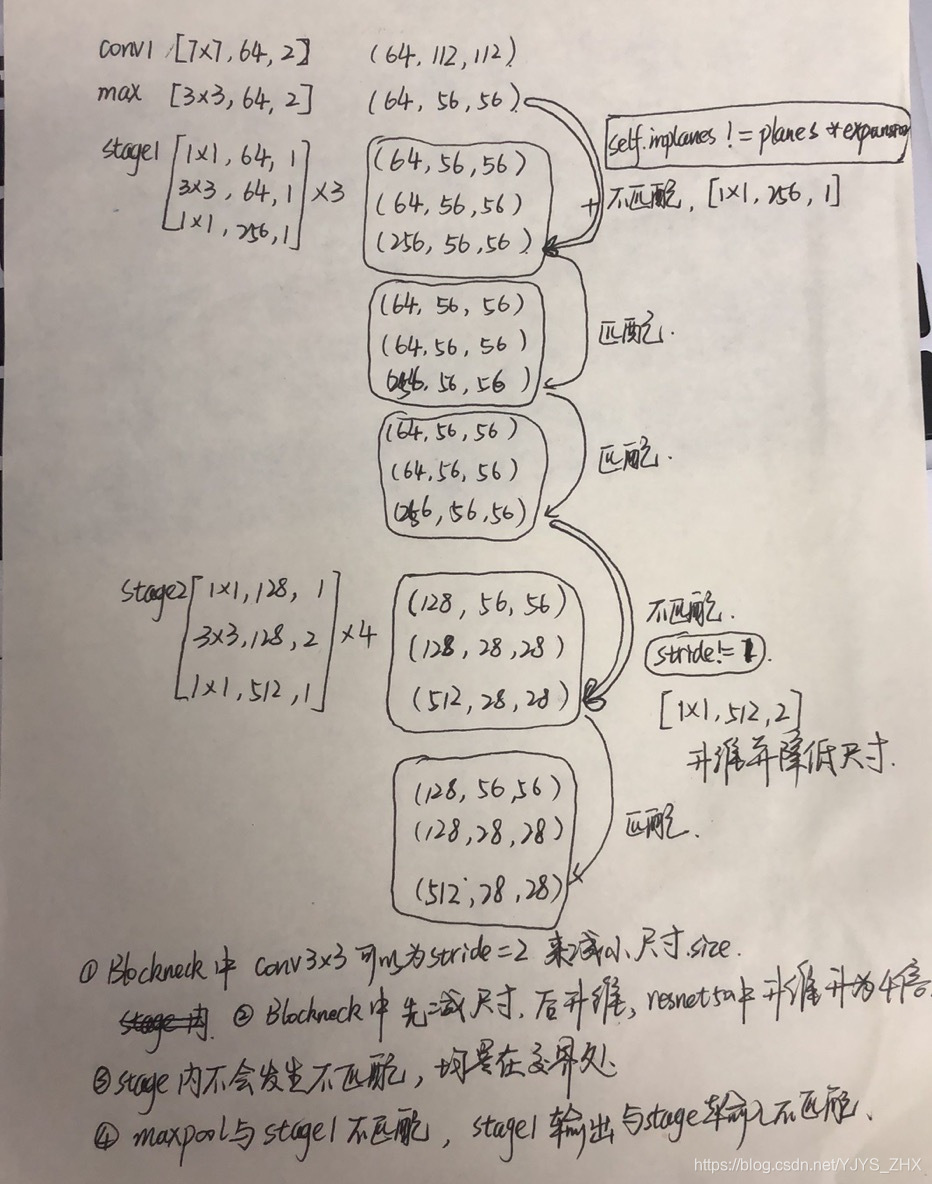 conv1 [7×7, 64, 2] (64, 112, 112)
max [3×3, 64, 2] (64, 56, 56)
self.inplanes != planes * expansion
stage1 [1×1, 64, 1 (64, 56, 56)
3×3, 64, 1 ×3 (64, 56, 56) + 不匹配, [1×1, 256, 1]
1×1, 256, 1] (256, 56, 56)
(64, 56, 56)
(64, 56, 56) 匹配.
(256, 56, 56)
(64, 56, 56)
(64, 56, 56) 匹配.
(256, 56, 56)
stage2 [1×1, 128, 1 (128, 56, 56) 不匹配.
3×3, 128, 2 ×4 (128, 28, 28) stride != 1.
1×1, 512, 1] (512, 28, 28) [1×1, 512, 2]
升维并降低尺寸.
(128, 56, 56)
(128, 28, 28) 匹配.
(512, 28, 28)
① Blockneck中 conv3×3 可以为stride=2 来减小尺寸size.
② Blockneck中 先减尺寸, 后升维, resnet50中升维升为4倍.
③ stage内不会发生不匹配, 均是在交界处.
④ maxpool与stage1不匹配, stage1输出与stage输入不匹配.
https://blog.csdn.net/YJYS_ZHX